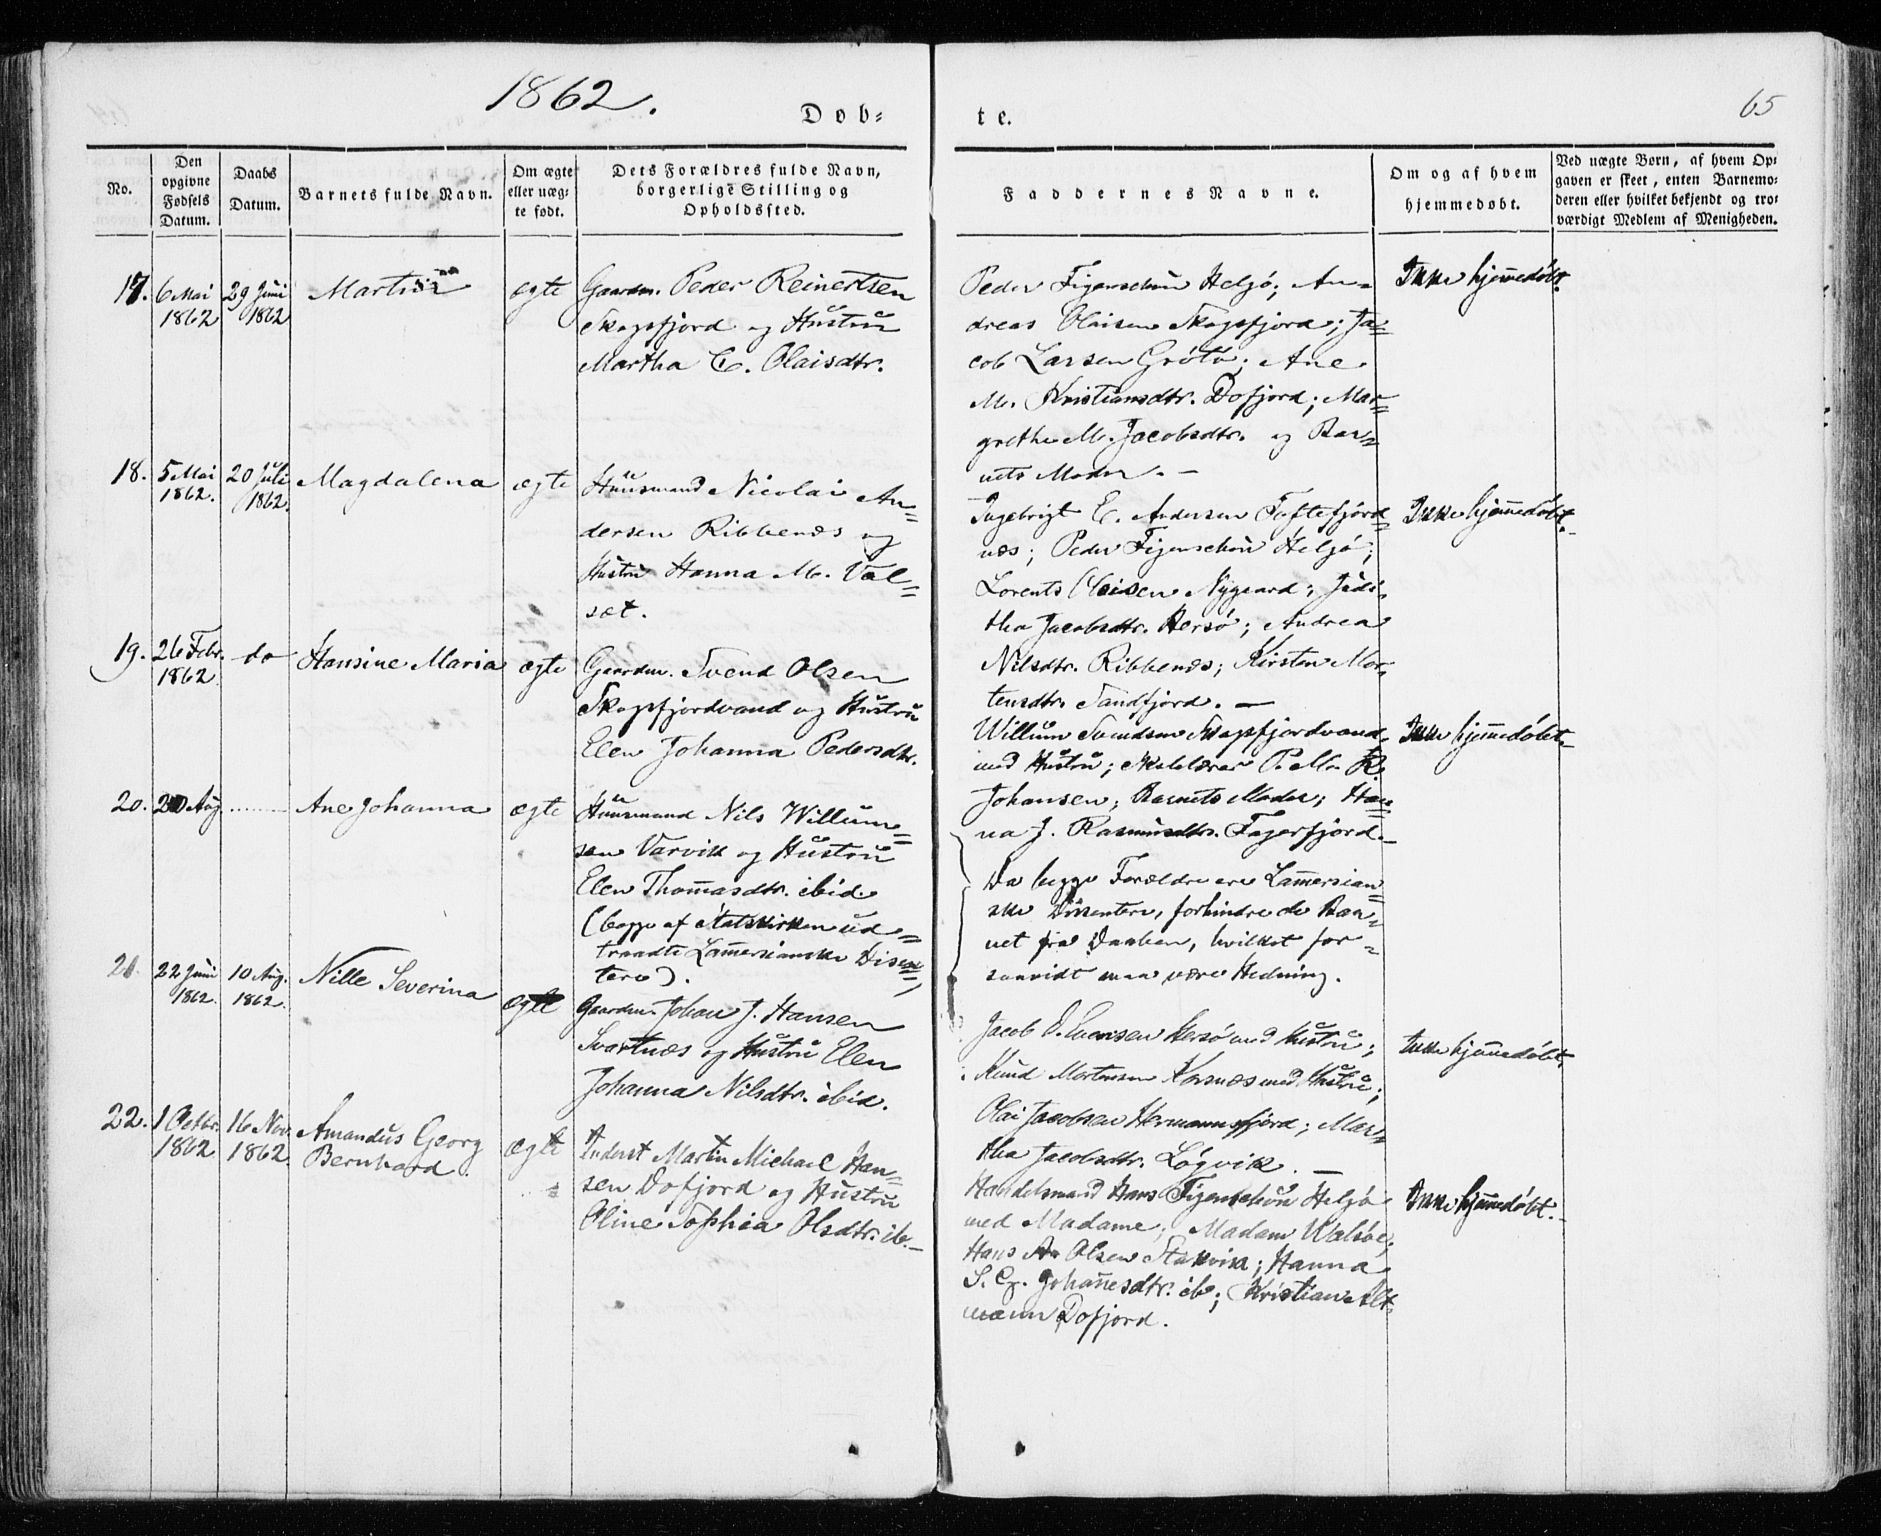 1862.
65
Døb=
te.
No.
Den opgivne Fødsels Datum.
Daabs Datum.
Barnets fulde Navn.
Om ægte eller uæg= te født.
Dets Forældres fulde Navn, borgerlige Stilling og Opholdssted.
Faddernes Navne.
Om og af hvem hjemmedøbt.
Ved uægte Børn, af hvem Op= gaven er skeet, enten Barnemo= deren eller hvilket bekjendt og tro= værdigt Medlem af Menigheden.
17. 6 Mai 1862 29 Juni 1862 ægte
Gaardm. Peder Reinertsen
Skogsfjord og Hustru
Martha C. Olaisdtr.
Peder Figenschou Helgø; An=
dreas Olaisen Skogsfjord; Ja=
cob Larsen Grøtø; Ane
M. Kristiansdtr. Dofjord; Mar=
grethe M. Jacobsdtr. og Bar=
nets Moder. —
Ikke hjemmedøbt.
18. 5 Mai 1862. 20 Juli 1862. Magdalena ægte
Huusmand Nicolai An=
dersen Ribbenæs og
Hustru Hanna M. Val=
sæt.
Ingebrigt E. Andersen Toftefjord=
næs; Peder Figenschou Helgø;
Lorents Olaisen Nygaard; Judi=
tha Jacobsdtr. Hersø; Andrea
Nilsdtr. Ribbenæs; Kirsten Mor=
tensdtr. Sandfjord. —
Ikke hjemmedøbt.
19. 26 Febr. 1862. do Hansine Maria ægte
Gaardm. Svend Olsen
Skogsfjordvand og Hustru
Elen Johanna Pedersdtr.
Willum Svendsen Skogsfjordvand
med Hustru; Skolelærer P. M. K.
Johansen; Barnets Moder; Han=
na J. Rasmusdtr. Fagerfjord. —
Ikke hjemmedøbt.
20. 20 Aug. ........ Ane Johanna ægte
Huusmand Nils Willum=
sen Varvik og Hustru
Elen Thomasdtr. ibid.
(begge af Statskirken ud=
traadte Lammersianske Disen=
tere).
Da begge Forældre ere Lammersian=
ske Dissentere, forhindre de Bar=
net fra Daaben, hvilket for=
saavidt maa være Hedning.
21. 22 Juni 1862. 10 Aug. 1862. Nille Severina ægte
Gaardm. Johan J. Hansen
Svartnæs og Hustru Elen
Johanna Nilsdtr. ibid.
Jacob Hersø med Hustru;
Knud Mortensen Kornæs med Hustru;
Olai Jacobsen Hermannsfjord; Mar=
tha Jacobsdtr. Løgvik. —
Ikke hjemmedøbt.
22. 1 Octbr. 1862 16 Nov. 1862. Amandus Georg Bernhard. ægte
Inderst Martin Michael Han=
sen Dofjord og Hustru
Oline Sophia Olsdtr. ib. —
Handelsmand Hans Figenschou Helgø
med Madame; Madam Walsøe;
Hans A. Olsen Stakvik; Hanna
S. C. Johannesdtr. ib; Kristian Alt=
mann Dofjord.
Ikke hjemmedøbt. —